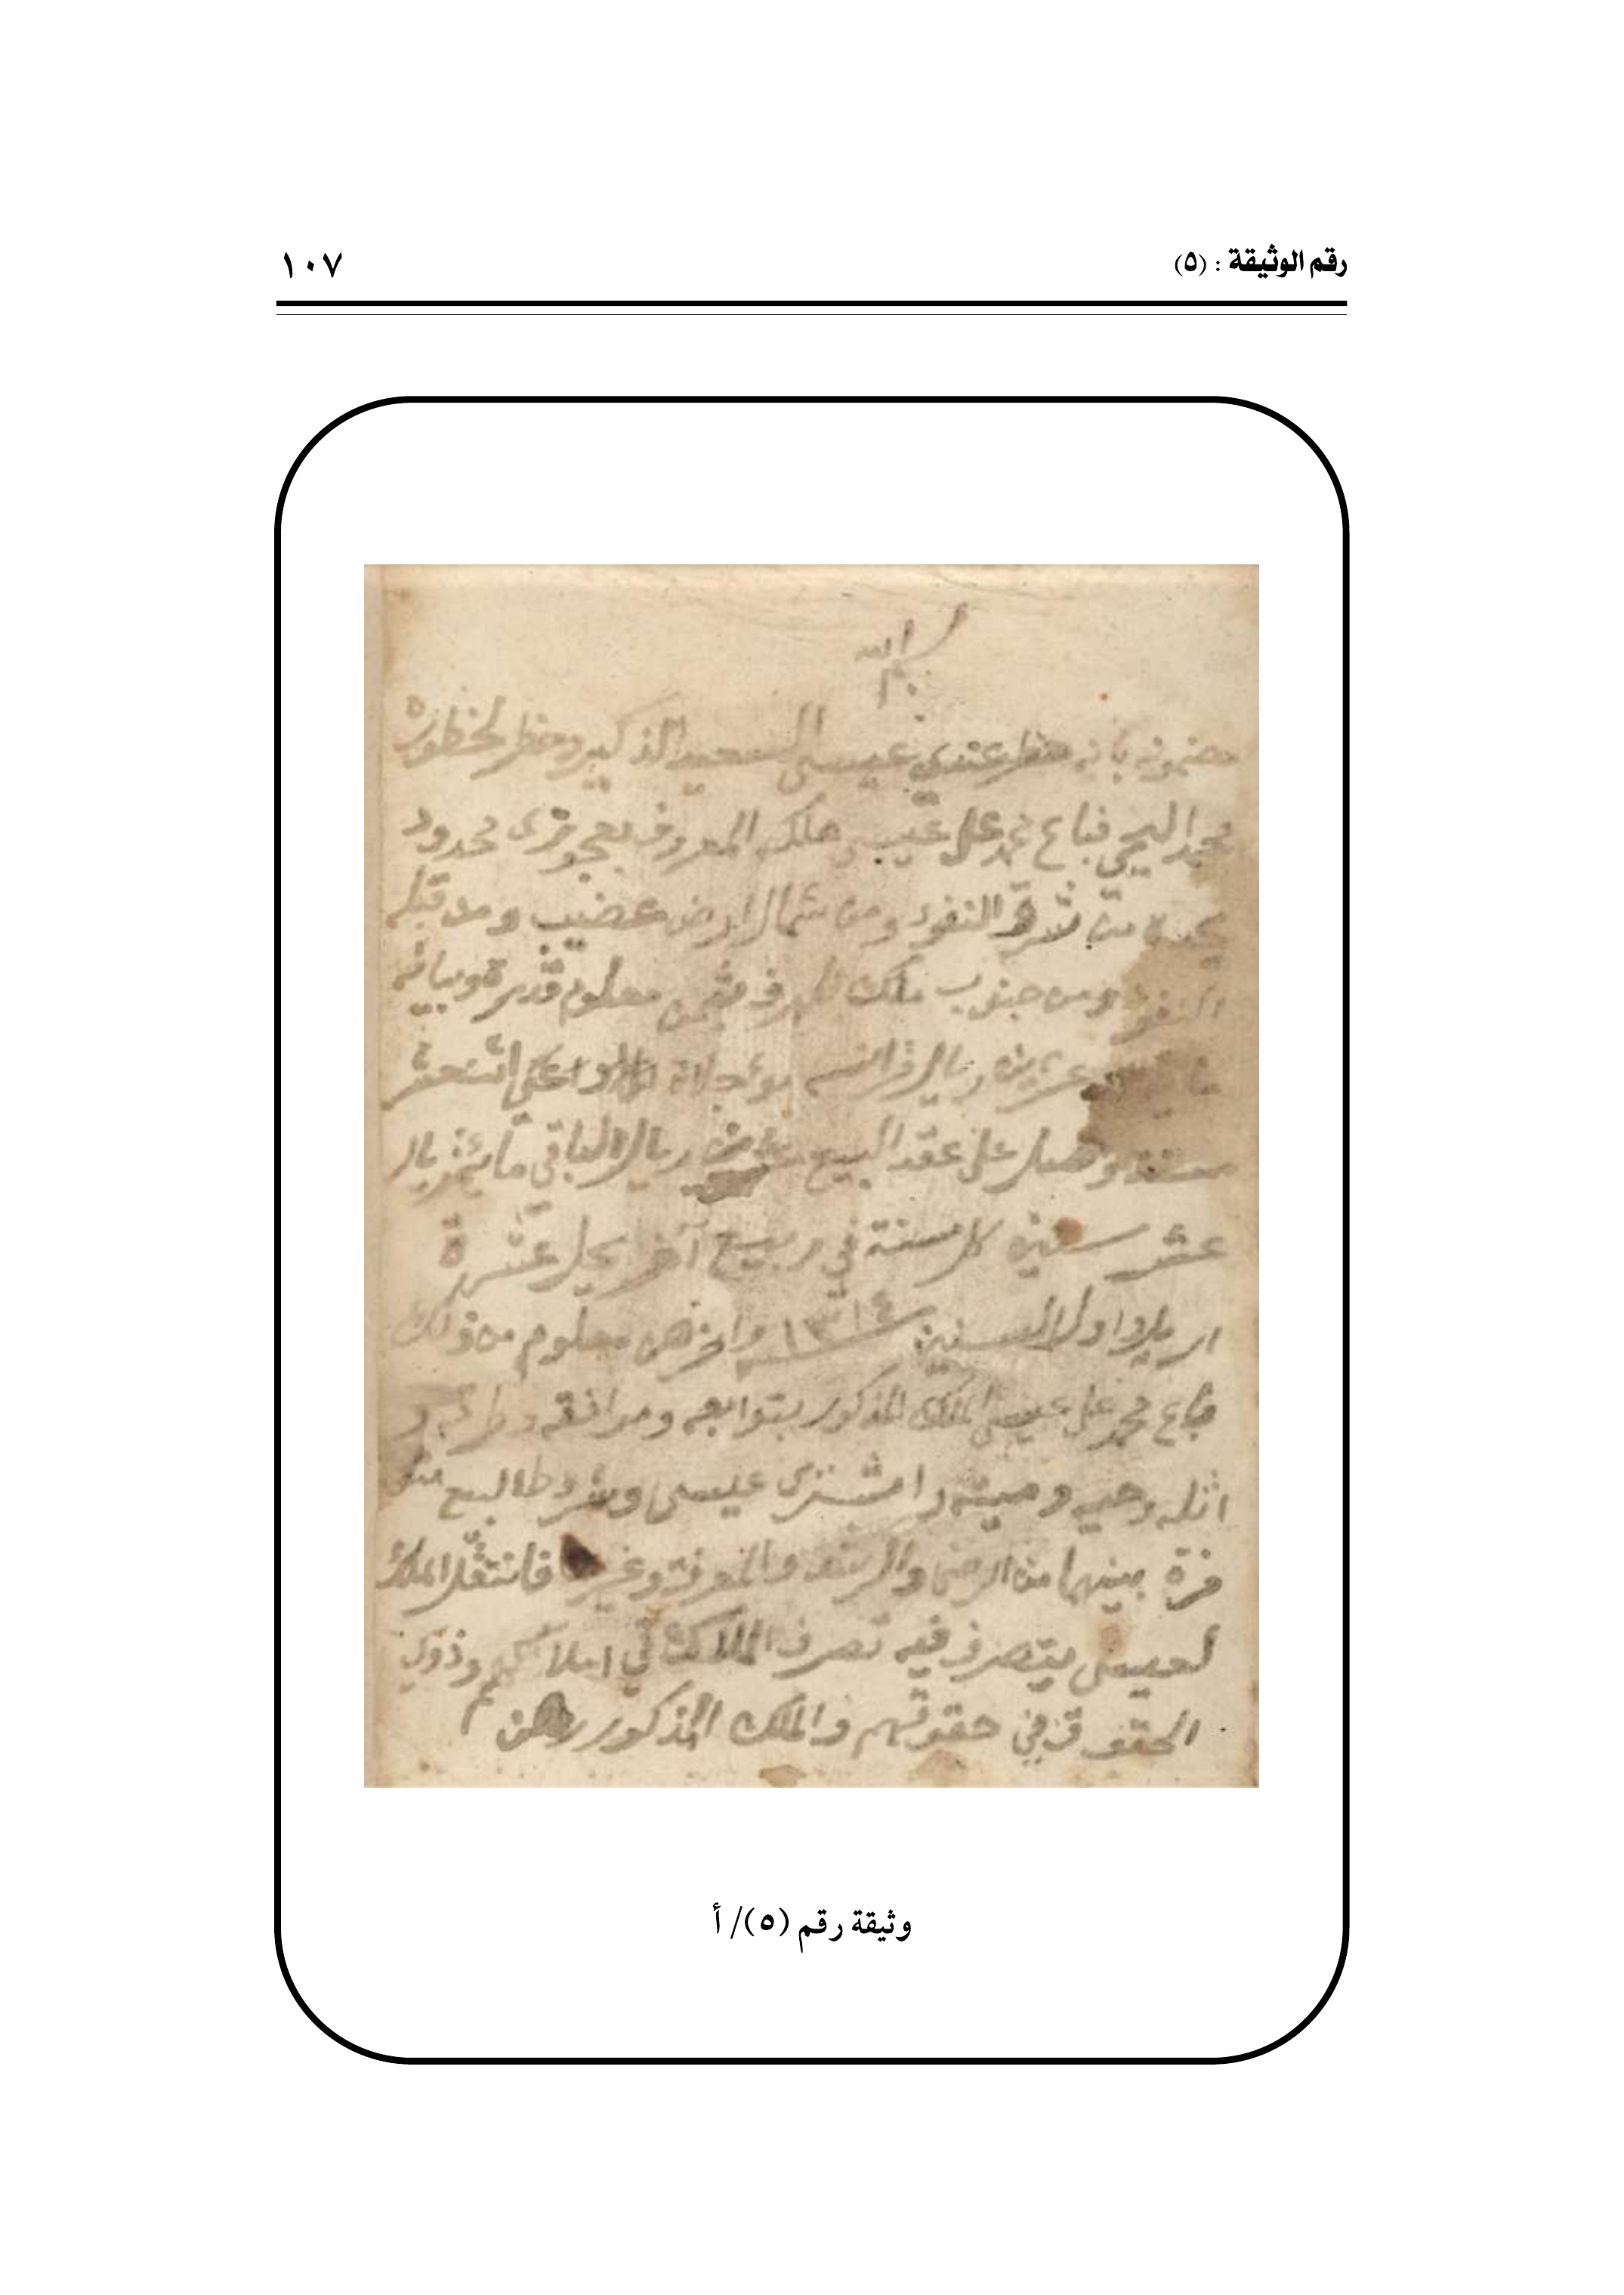 رقم الوثيقة : (٥)
١٠٧
بسم الله
مضمونه بأنه حظر عندي عيسى السعيد الذكير وحظر لحظوره
محمد اليحيى فباع محمد على عيسى ملكه المعروف محدود
من شرق النفود ومن شمال ارض عضيب ومن قبله
النفود ومن جنوب ملك بثمن معلوم قدره وبيانه
عشرين ريال فرانسه مؤجلات
سنة وصل على عقد البيع ريال الباقي مائة ريال
عشر سنين كل سنة في ربيع آخر يحل عشرة
اريل اول السنين ١٣١٤ معلوم من ذلك
فباع محمد على عيسى الملك المذكور بتوابعه ومرافقه وطرقه و
اثله وحيه وميته واشترى عيسى وشروط البيع متو
فرة بينهما من الرضى والرشد والمعرفة وغيرها فانتقل الملك
لعيسى يتصرف فيه تصرف الملاك في املاكهم وذوي
الحقوق في حقوقهم والملك المذكور رهن
وثيقة رقم (٥)/ أ